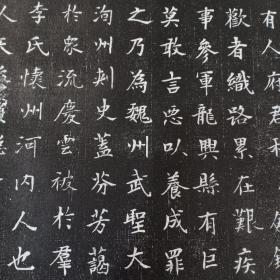 有人府君和
歡者織路累在艱疚
事參軍龍興縣有巨
莫敢言以養成罪
之乃為魏州武聖大
洵州刺史蓋芬芳藹
於眾流慶雲被於羣
李氏懷州河内人也
人天